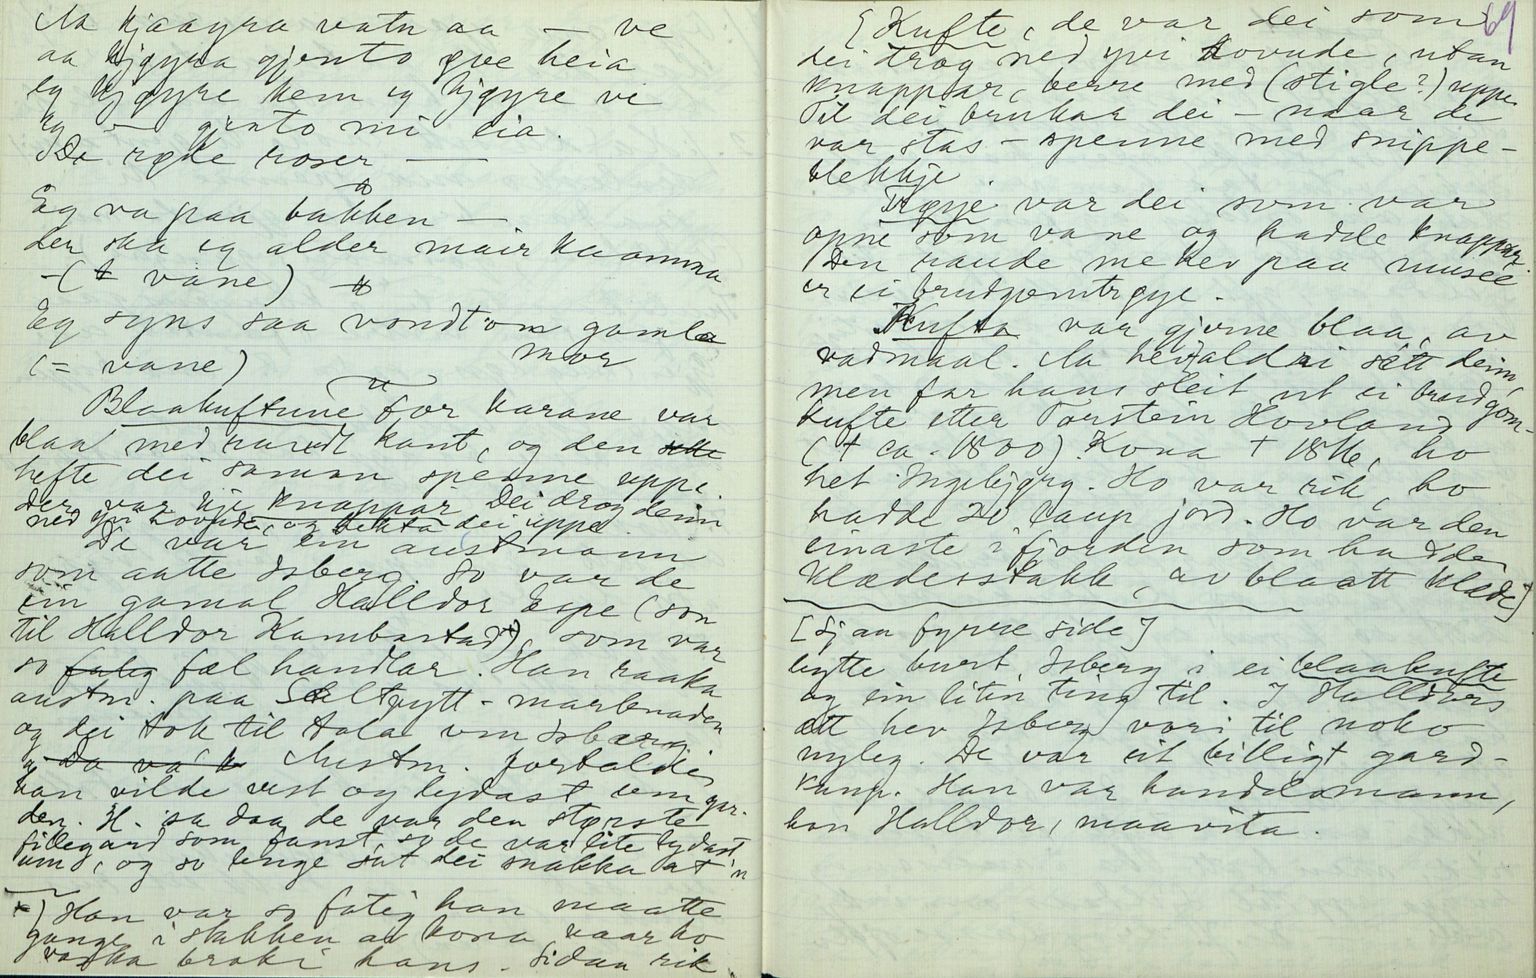 Aa kjøayra vatn aa — ve
aa kjøyra gjento øve heia
eg kjøyre hem eg kjøyre ve
eg — gjento mi eia.
De røde roser —
Eg va paa bakken —
der ska eg alder mair kaamma
-(± vane)
Eg syns saa vondt om gamle
mor
(= vane)
Blaakuftune for karane var
blaa med raudt kant, og den
hefte dei saman spenne uppe.
Der var kje knappar. Dei drog deim
ned yvi hovude, og hekta dei uppe
De var ein austmann
som aatte Isberg. So var de
ein gamal Halldor Espe (son
til Halldor Kambastad ×), som var
so fatig fæl handlar. Han raaka
austm. paa Saltøytt-marknaden
og dei tok til tala um Isberg.
og Da va' h Austm. fortalde
han vilde vest og lydast um gar-
den. H. sa daa de var den største
fillegard som fanst, so de var lite lydast
um, og so lenge sat dei snakka at 'n
×) Han var so fatig han maatte
gange i stakken av kona naar ho
vaska broki hans. Sidan rik.
69
[Kufte, de var dei som
dei drog ned yvi hovude, utan
knappar, berre med (stigle?) uppe.
Til dei brukar dei — naar de
var stas — spenne med snippe-
blekkje
Trøje var dei som var
opne som vane og hadde knappar.
Den raude me hev paa museé
er ei brudgomtrøye.
Kufta var gjerne blaa, av
vadmaal. Aa hev aldri sett deim,
men far hans sleit ut ei brudgom-
kufte etter Torstein Hovland
(† ca. 1800). Kona † 1816, ho
het Ingebjørg. Ho var rik, ho
hadde 20 laup jord. Ho var den
einaste i fjorden som hadde
klædesstakk, av blaatt klæde]
[Sj aa fyrre side]
bytte burt Isberg i ei blaakufte
og ein liten ting til. I Halldors
ætt hev Isberg vori til noko
nyleg. De var eit billigt gard-
kaup. Han var handelsmann,
han Halldor, maavita.